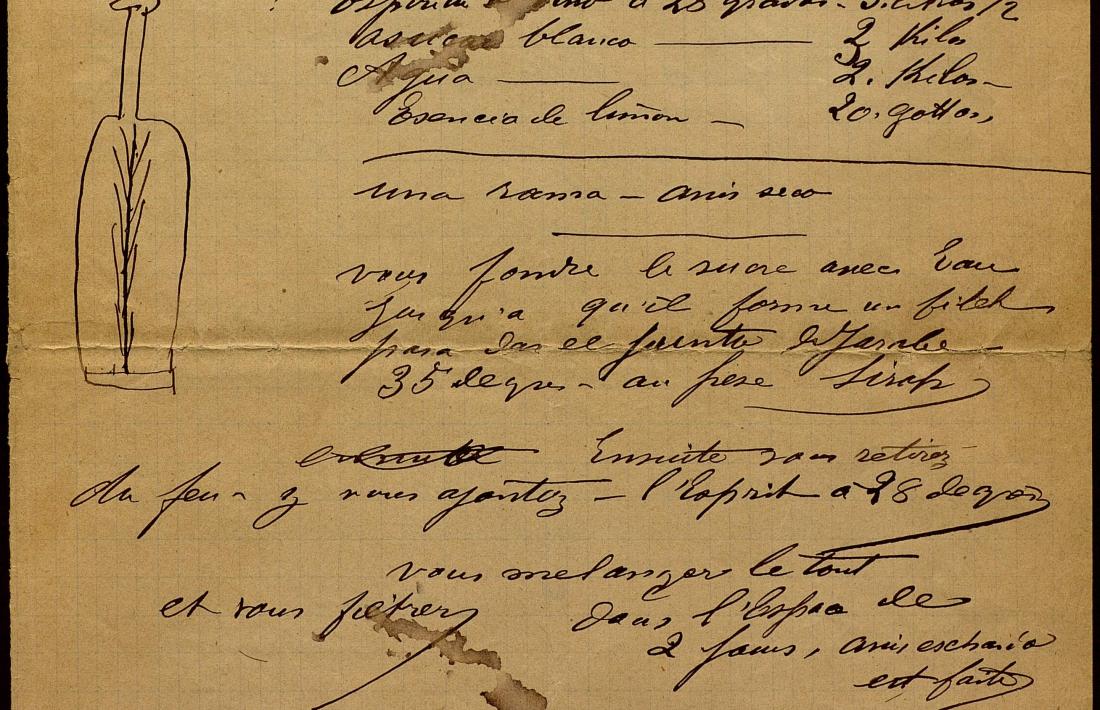 a 28 grados - 3. litros 1/2
asucar blanco — 2 Kilos
Agua — 2. Kilos -
Esencia de limon — 20. gottas,
una rama - anis seco
vous fondre le sucre avec Eau
jusqu'a qu'il forme un filet
para dar el puntto de Jarabe -
35 degres - au pese Sirop
Ensuite vous retirez
du feu - y vous ajoutez - l'Esprit a 28 degrés
vous melanger le tout
et vous filtrer
dans l'Espac de
2 Jours, anis escharia
est faite